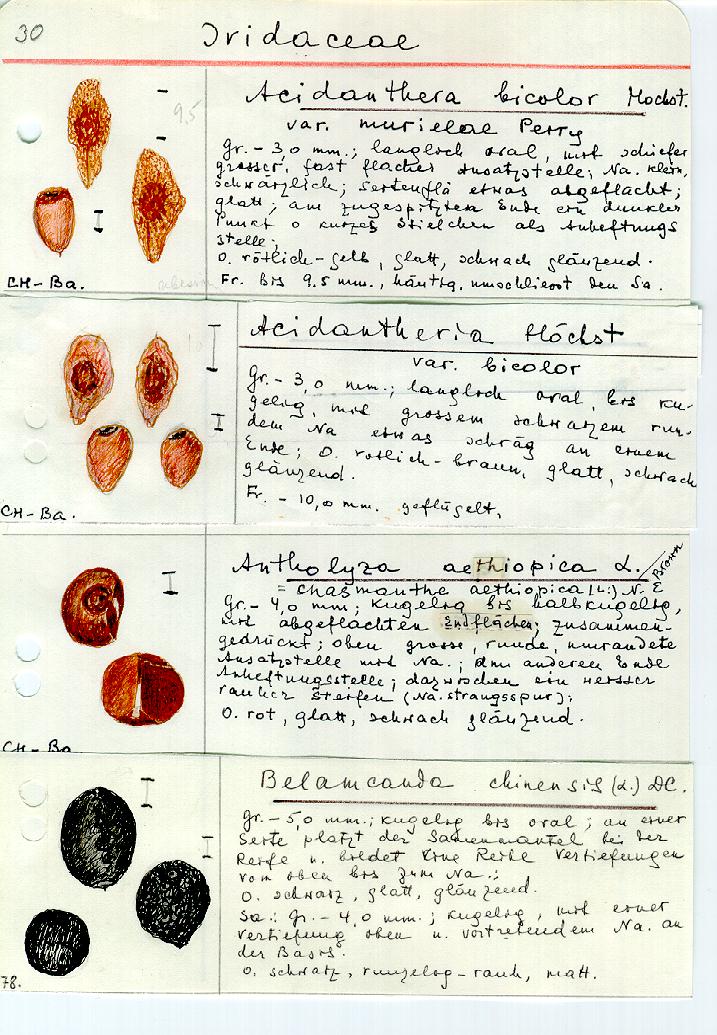 30
Iridaceae
Acidanthera bicolor Hochst.
var. murielae Perry
9,5
Gr. - 3,0 mm.; länglich oval, mit schiefer
grosser, fast flacher Ansatzstelle; Na. klein,
schwärzlich; Seitenflä etwas abgeflacht;
glatt; am zugespitzten Ende ein dunkler
Punkt o kurzes Stielchen als Anheftungs
stelle;
O. rötlich-gelb, glatt, schwach glänzend.
Fr. bis 9.5 mm., häutig, umschliesst den Sa.
CH-Ba.
Acidantheria Höchst
var. bicolor
10
Gr. - 3,0 mm.; länglich oval, bis ku-
gelig, mit grossem schwarzem run-
dem Na etwas schräg an einem
Ende; O. rötlich-braun, glatt, schwach
glänzend.
Fr. - 10,0 mm. geflügelt,
CH-Ba.
Antholyza aethiopica L.
= Chasmanthe aethiopica (L.) N. E
Brown
Gr. - 4,0 mm; kugelig bis halbkugelig,
mit abgeflachten Endflächen; zusammen-
gedrückt; oben grosse, runde, umrandete
Ansatzstelle mit Na.; am anderen Ende
Anheftungsstelle; dazwischen ein weisser
rauher Streifen (Na.strangsspur);
O. rot, glatt, schwach glänzend.
CH-Ba
Belamcanda chinensis (L.) DC.
Gr. - 5,0 mm.; kugelig bis oval; an einer
Seite platzt der Samenmantel bei der
Reife u. bildet eine Reihe Vertiefungen
vom oben bis zum Na.;
O. schwarz, glatt, glänzend.
Sa.: Gr. - 4,0 mm.; kugelig, mit einer
Vertiefung oben u. vortretendem Na. an
der Basis.
O. schwarz, runzelig-rauh, matt.
78.